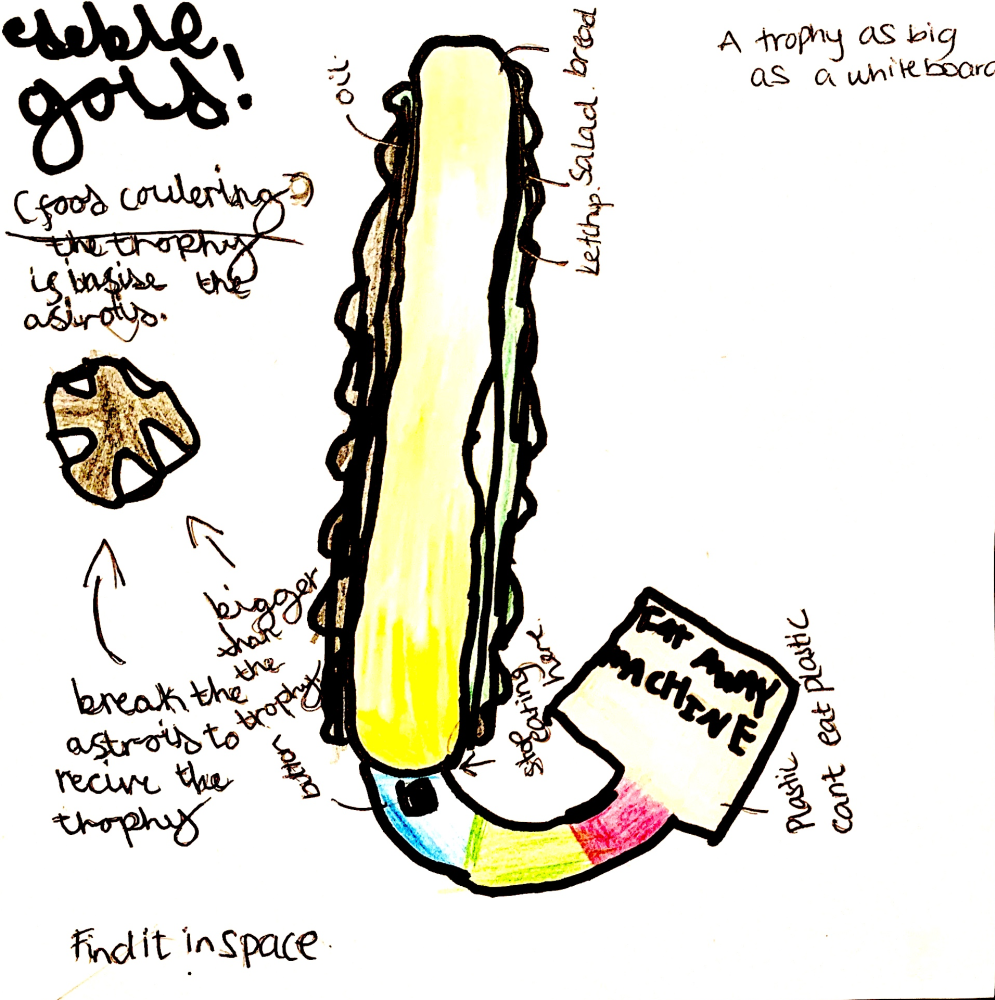 edeble
gold!
(food coulering)
the trophy
is inside the
astroids.
oil
bread
Salad.
ketchup.
A trophy as big
as a whiteboard
bigger
than
the
trophy
break the
astroids to
recive the
trophy
button
stop
eating here
EAT AWAY
MACHINE
Plastic
cant eat plastic
Find it in space